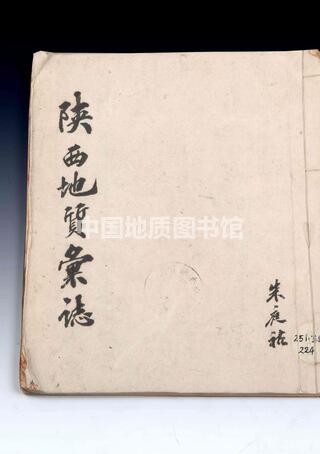 陕西地质彙誌
中国地质图书馆
朱庭祜
224